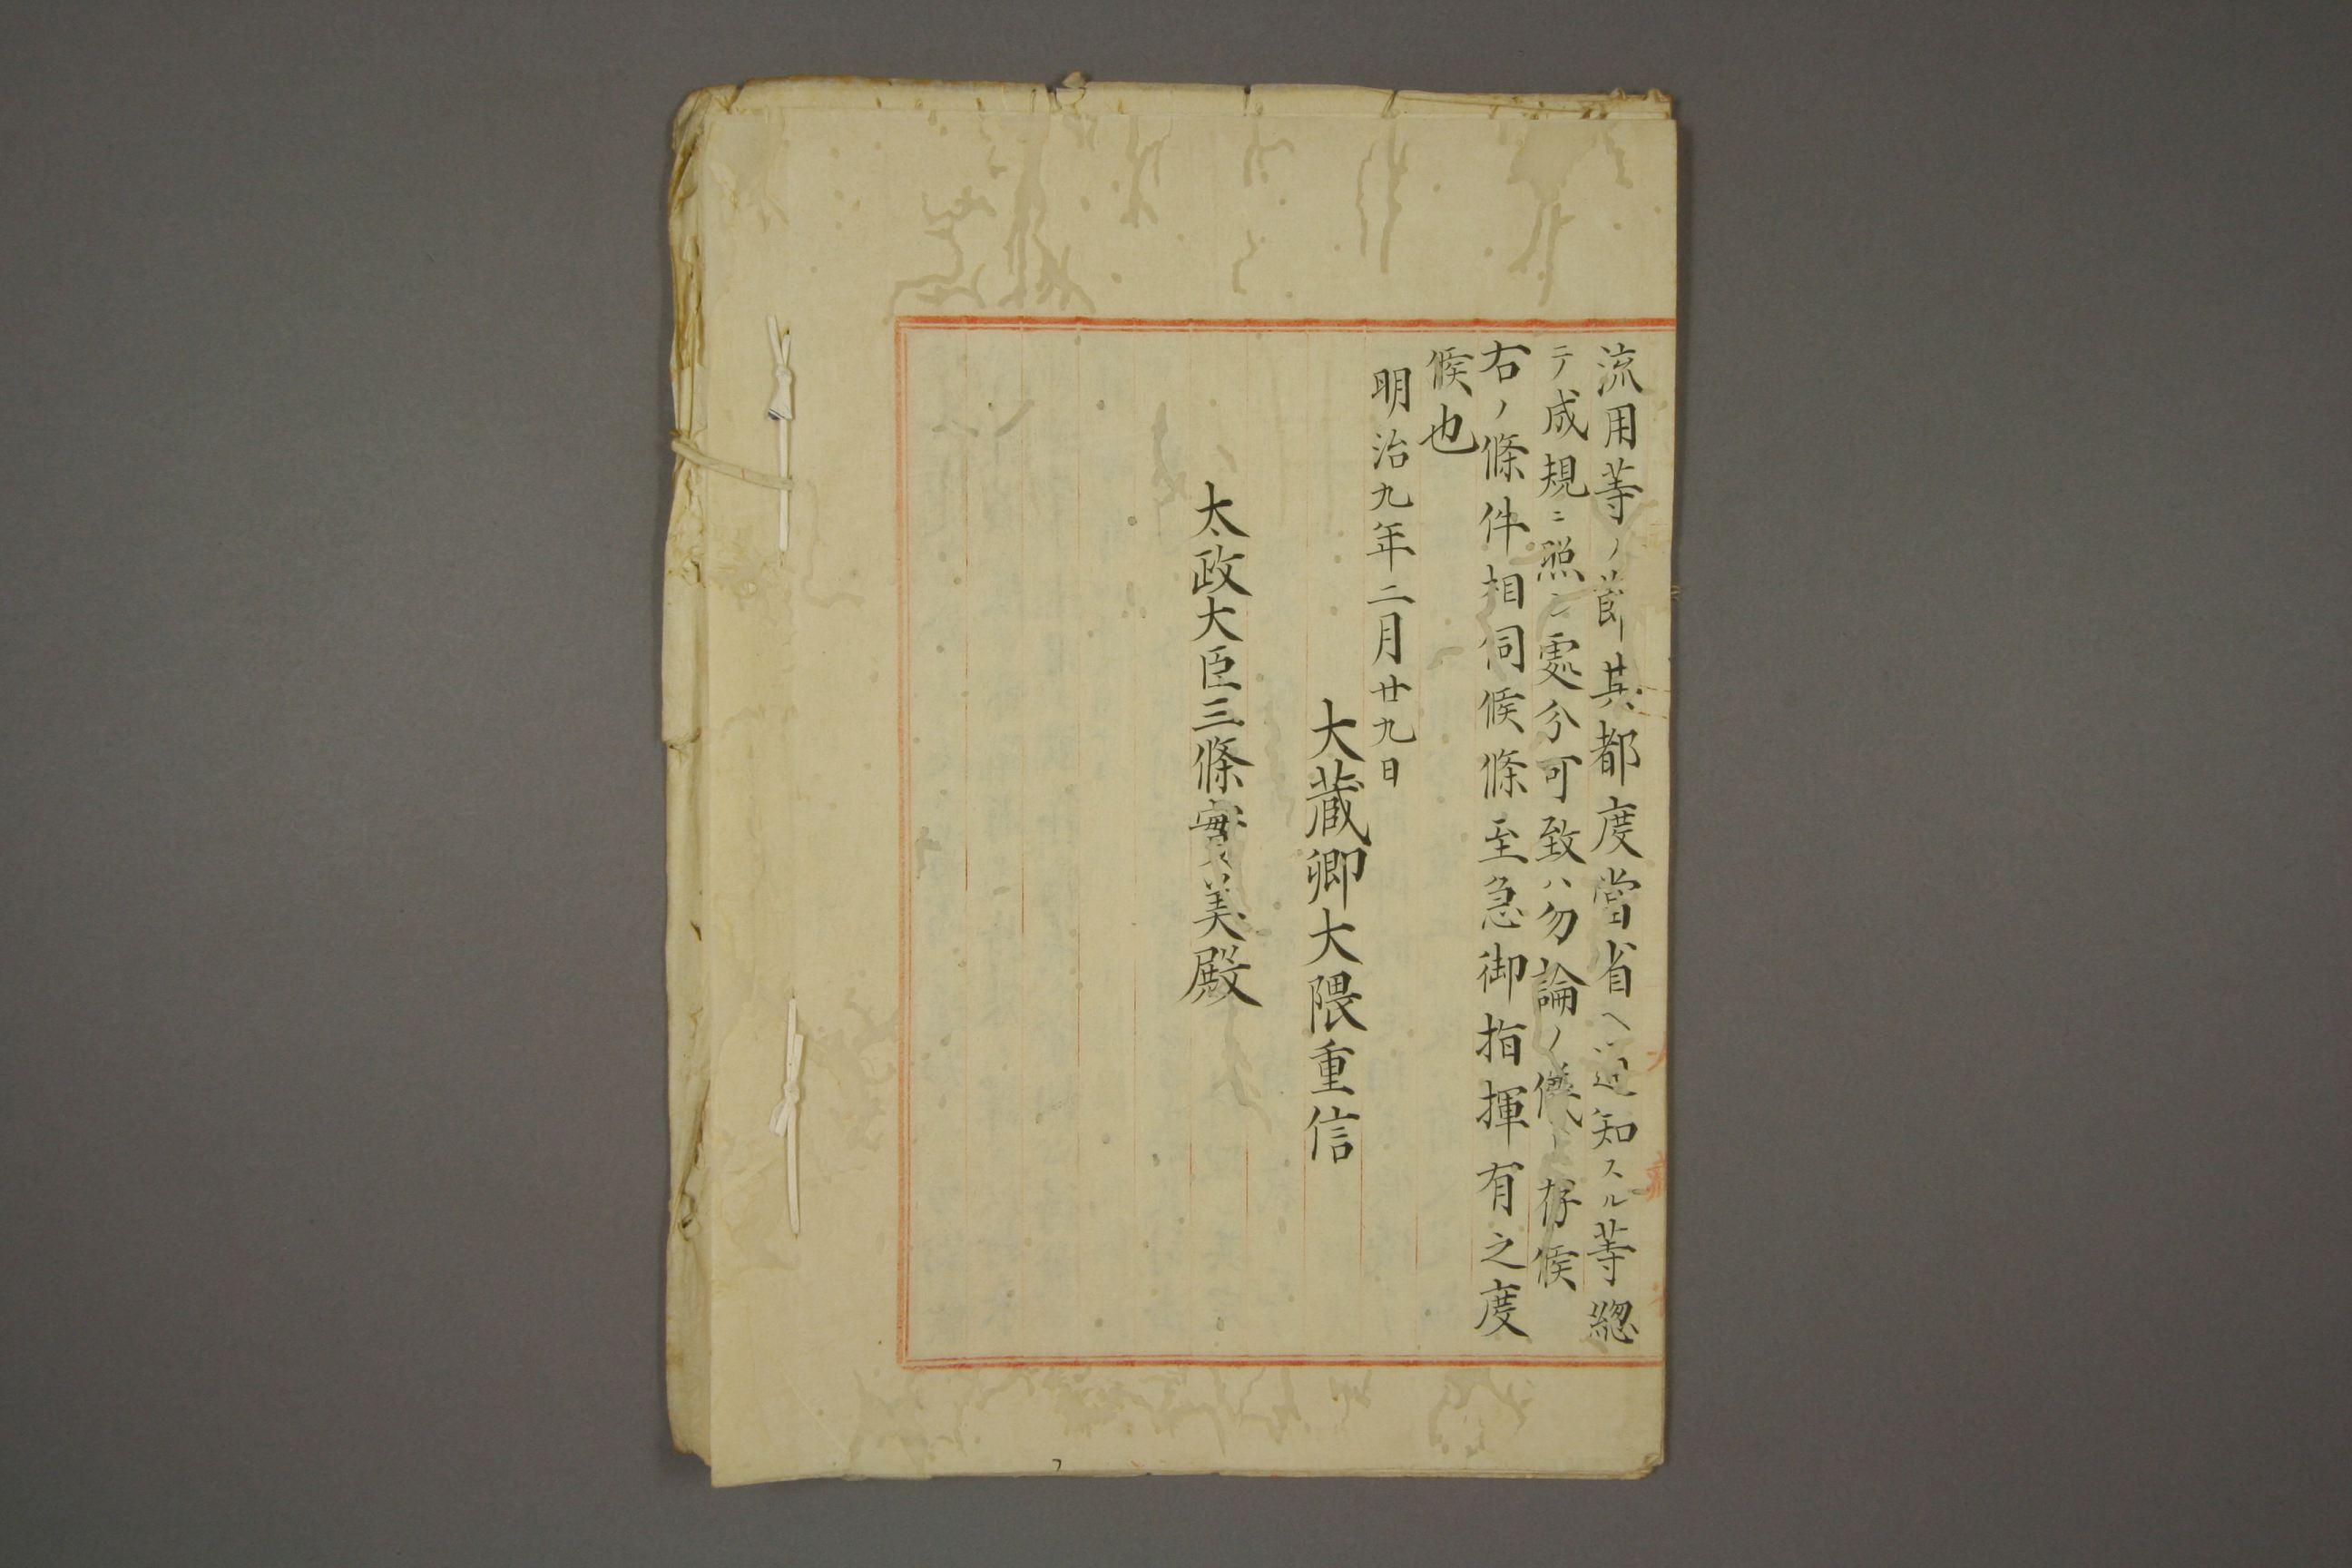 流用等ノ節其都度當省ヘ通知スル等總
テ成規ニ照シ處分可致ハ勿論ノ儀ト存候
右ノ條件相伺候條至急御指揮有之度
候也
明治九年二月廿九日
大藏卿大隈重信
太政大臣三條實美殿